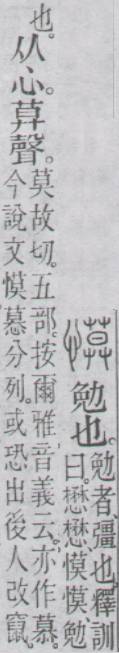 慔 勉也。
勉者、彊也。釋訓
曰。懋懋、慔慔、勉
也。
从心。莫聲。
莫故切。五部。按爾雅音義云。亦作慕。
今說文慔慕分列。或恐出後人改竄。